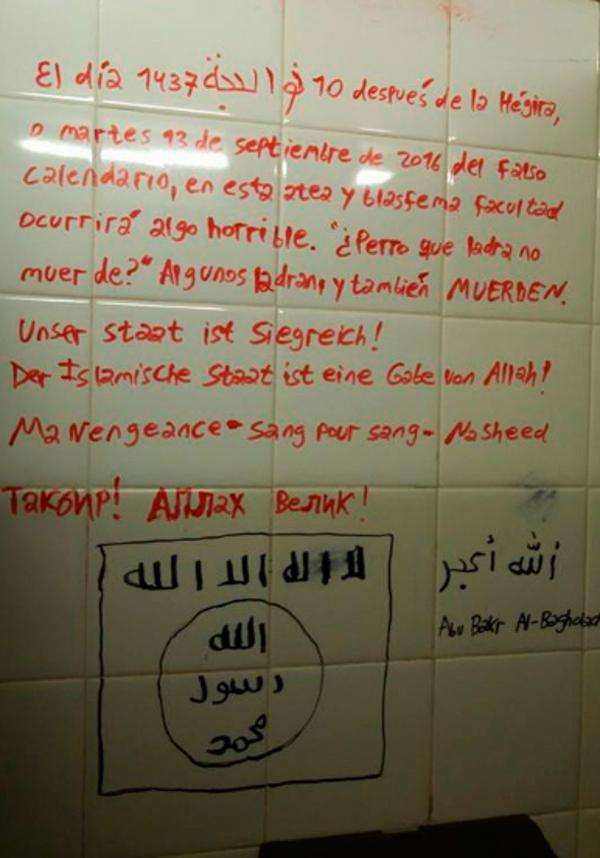 El día 1437 ذو الحجة 10 después de la Hégira,
o martes 13 de septiembre de 2016 del falso
calendario, en esta atea y blasfema facultad
ocurrirá algo horrible. "¿Perro que ladra no
muerde?" Algunos ladran, y también MUERDEN.
Unser staat ist Siegreich!
Der Islamische Staat ist eine Gabe von Allah!
Ma vengeance - sang pour sang - Nasheed
Такбир! Аллах Велик!
لا اله الا الله
الله
رسول
محمد
ألله أكبر
Abu Bakr Al-Baghdad